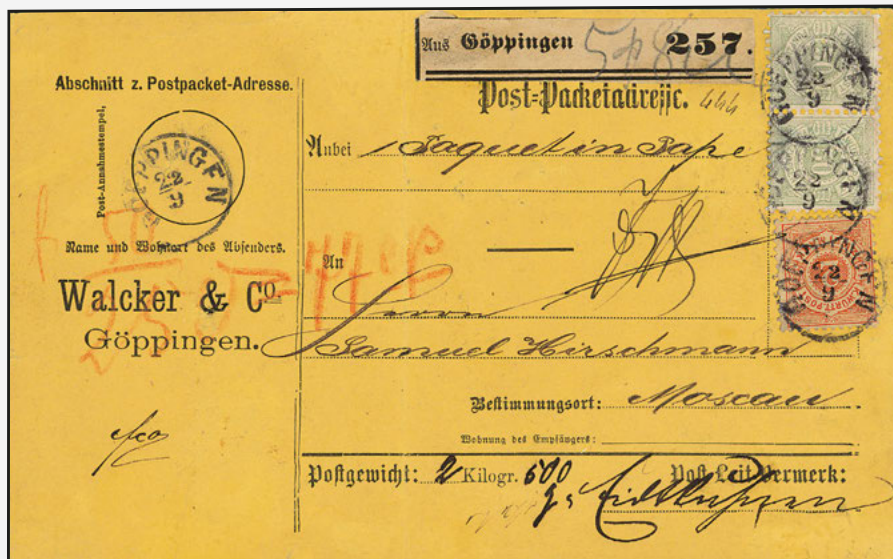 Aus Göppingen 257.
Abschnitt z. Postpacket-Adresse.
Post-Annahmestempel,
GOEPPINGEN
22
9
Name und Wohnort des Absenders.
Walcker & Co.
Göppingen.
fco
Post=Packetadresse. 444
Anbei 1 Paquet in Pape
An
Herrn
Samuel Hirschmann
Bestimmungsort: Moscau
Wohnung des Empfängers:
Postgewicht: 2 Kilogr. 500
Post-Leit-Vermerk:
Eidtkuhnen
GOEPPINGEN
22
9
GOEPPINGEN
22
9
GOEPPINGEN
22
9